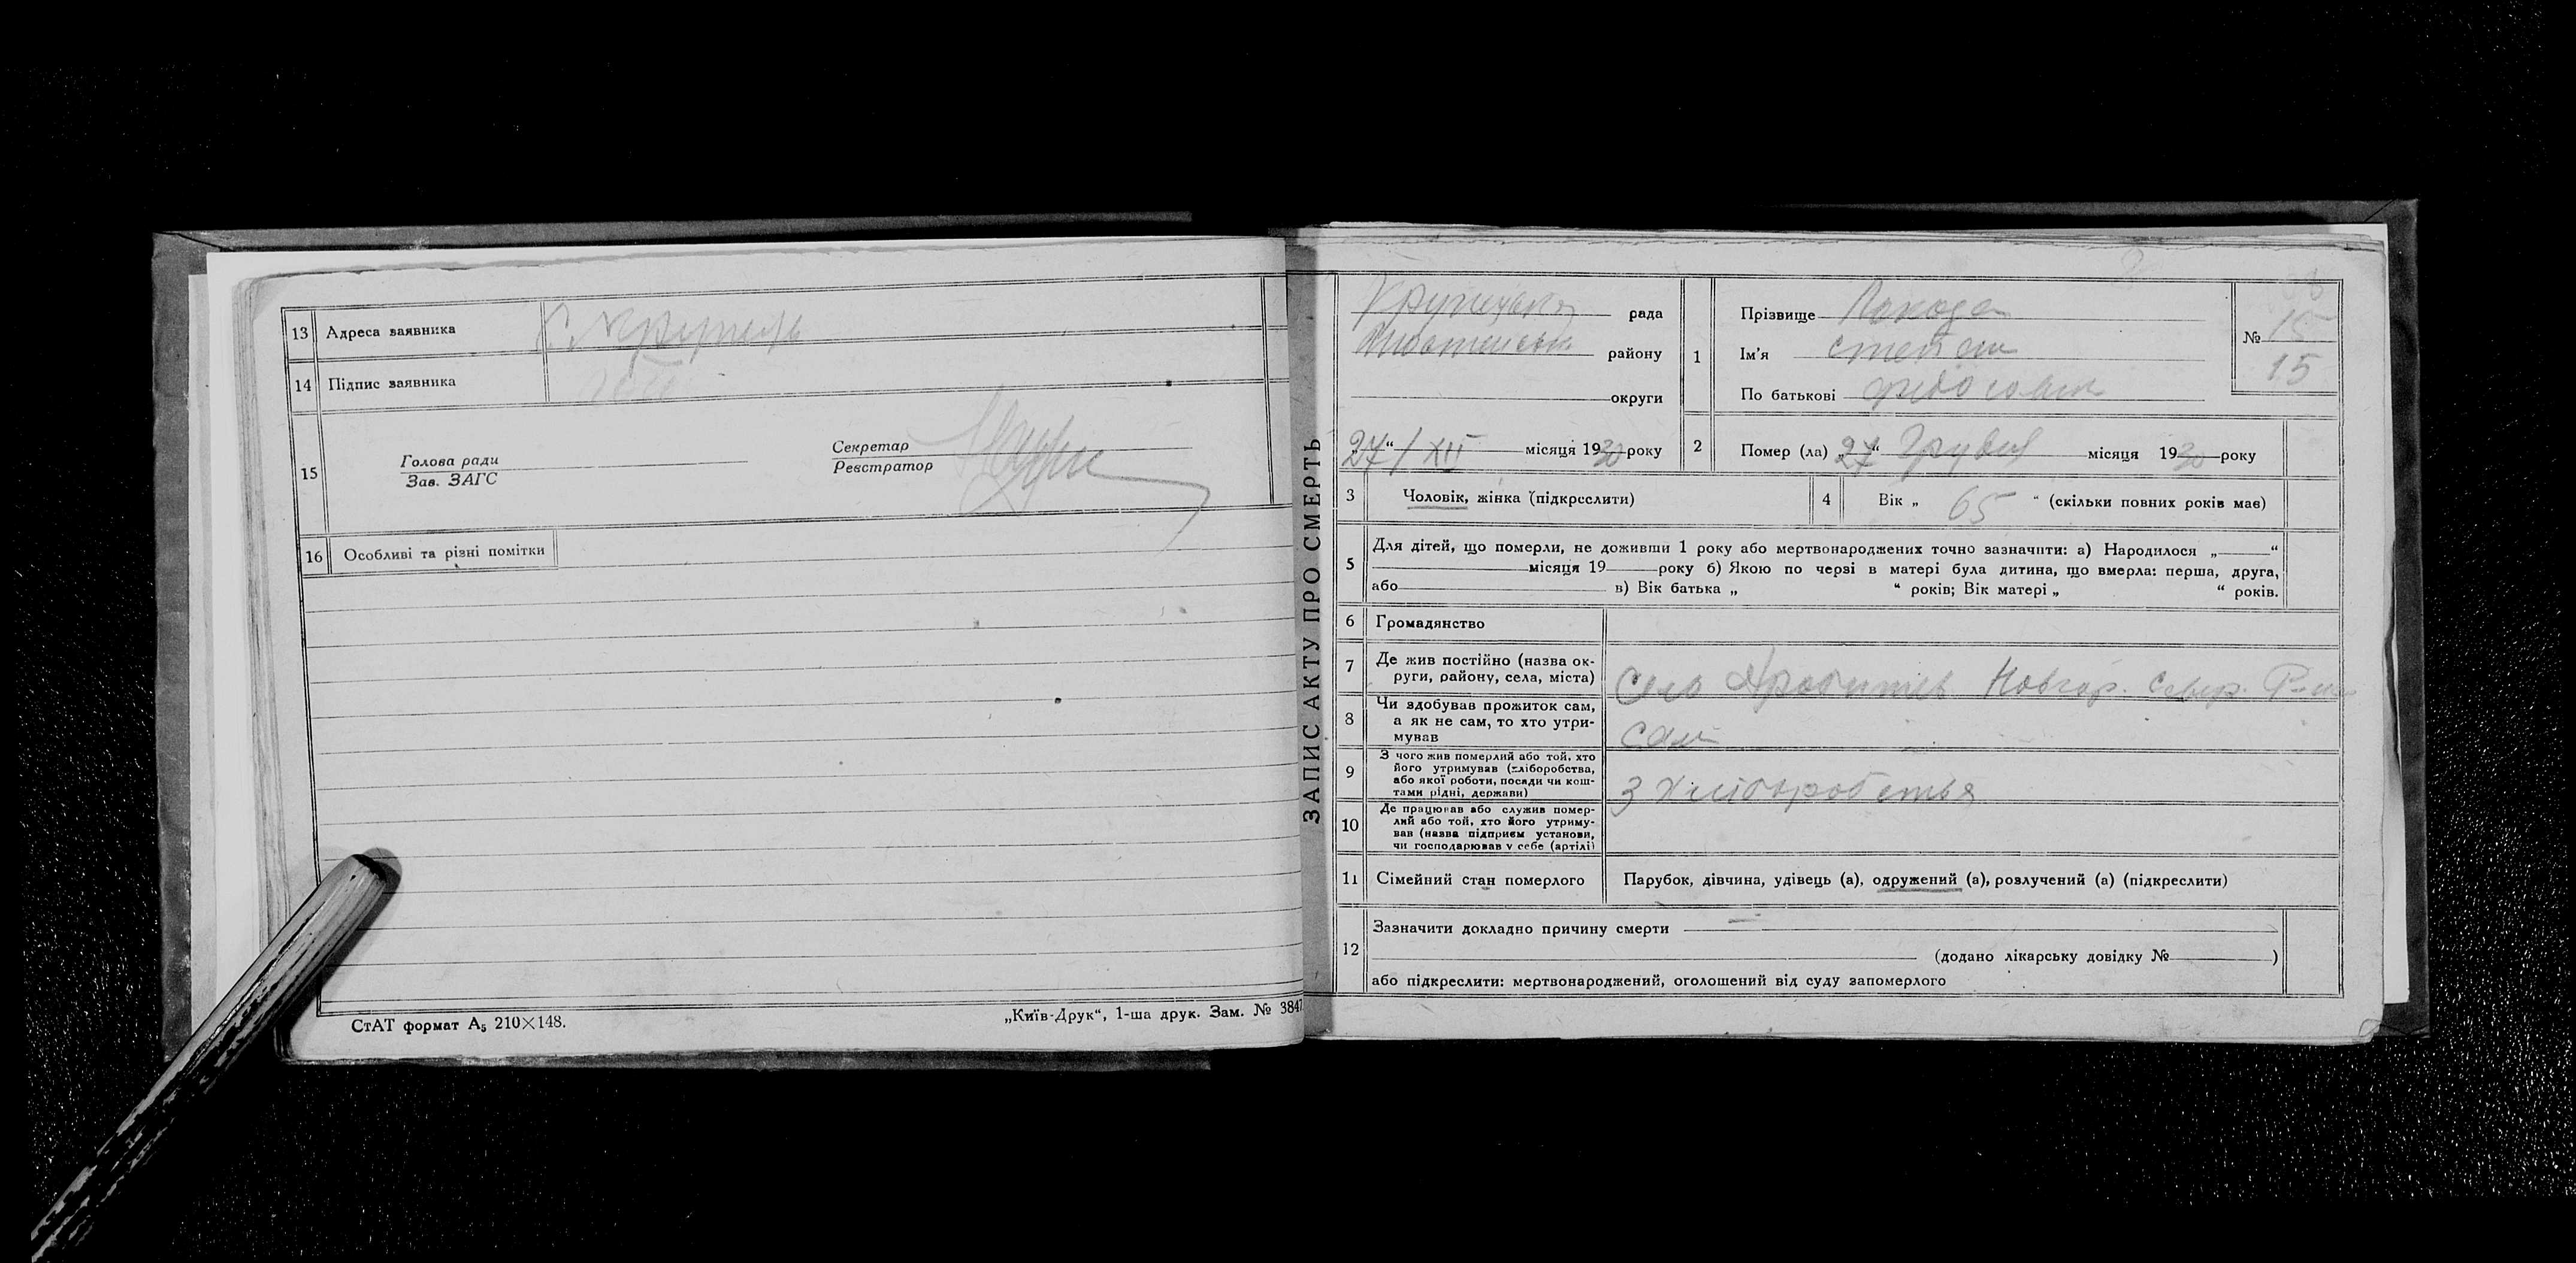 13 Адреса заявника С. Крупець
14 Підпис заявника
15
Голова ради
Зав. ЗАГС
Секретар
Реєстратор
16 Особливі та різні помітки
СтАТ формат А5 210×148.
„Київ-Друк“, 1-ша друк. Зам. № 3847
ЗАПИС АКТУ ПРО СМЕРТЬ
Крупецька рада
району
округи
„27“ / XII місяця 1930 року
1 Прізвище
Ім'я Степан
По батькові
№ 15
15
2 Помер (ла) „27“ Грудня місяця 1930 року
3 Чоловік, жінка (підкреслити)
4 Вік „ 65 “ (скільки повних років має)
5 Для дітей, що померли, не доживши 1 року або мертвонароджених точно зазначити: а) Народилося „ “
місяця 19 року б) Якою по черзі в матері була дитина, що вмерла: перша, друга,
або в) Вік батька „ “ років; Вік матері „ “ років.
6 Громадянство
7 Де жив постійно (назва ок-
руги, району, села, міста)
Село Новгор. Север.
8 Чи здобував прожиток сам,
а як не сам, то хто утри-
мував
сам
9 З чого жив померлий або той, хто
його утримував (хліборобства,
або якої роботи, посади чи кош-
тами рідні, держави)
З хліборобства
10 Де працював або служив помер-
лий або той, хто його утриму-
вав (назва підприєм установи,
чи господарював у себе (артілі)
11 Сімейний стан померлого Парубок, дівчина, удівець (а), одружений (а), розлучений (а) (підкреслити)
12 Зазначити докладно причину смерти —
(додано лікарську довідку № )
або підкреслити: мертвонароджений, оголошений від суду запомерлого